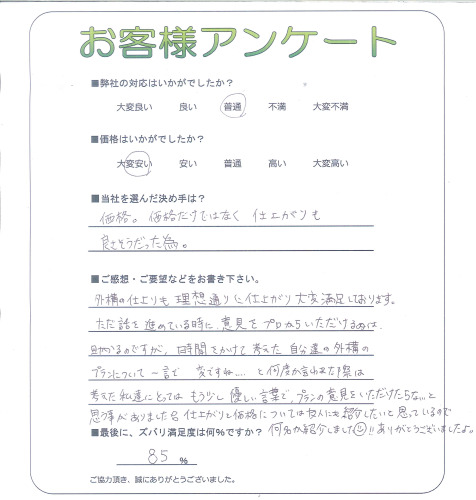 お客様アンケート
■弊社の対応はいかがでしたか？
大変良い 良い 普通 不満 大変不満
■価格はいかがでしたか？
大変安い 安い 普通 高い 大変高い
■当社を選んだ決め手は？
価格。価格だけではなく 仕上がりも
良さそうだった為。
■ご感想・ご要望などをお書き下さい。
外構の仕上りも 理想通りに仕上がり 大変満足しております。
ただ話を進めている時に、意見をプロからいただけるのは、
助かるのですが、時間をかけて考えた 自分達の外構の
プランについて 一言で 変ですね…. と何度か言われた際は
考えた私達にとっては もう少し 優しい言葉で、プランの意見をいただけたらな…と
思う事がありました 仕上がりと価格については友人にも紹介したいと思っているので
■最後に、ズバリ満足度は何％ですか？ 何名か紹介しました!! ありがとうございましたよ。
85 ％
ご協力頂き、誠にありがとうございました。